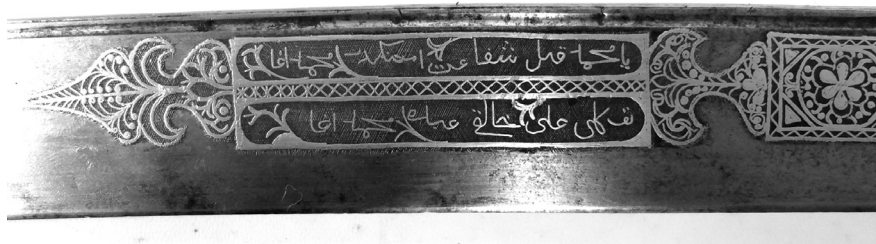 يا محمد قيل شفاعت امتكه محمد اغا
توكلي على خالقي عبده محمد اغا